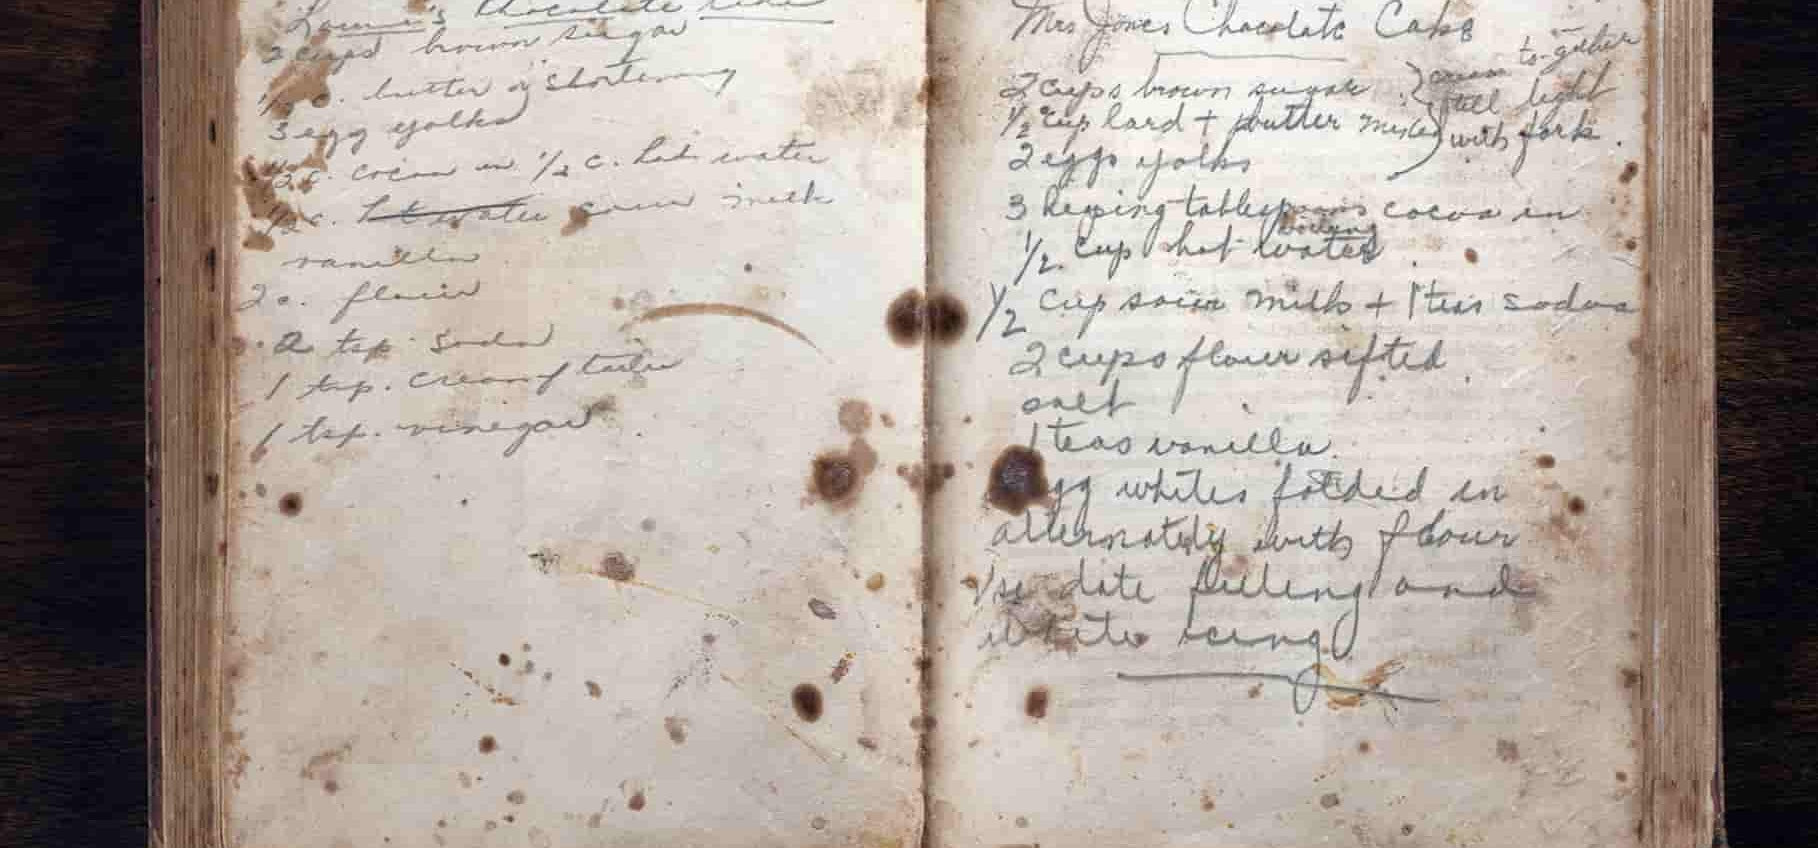 Chocolate
2 cups brown sugar
1/2 c. butter or shortening
3 egg yolks
1/2 c. cocoa in 1/2 c. hot water
1/2 c. hot water sour milk
vanilla
2 c. flour
2 tsp. soda
1 tsp. cream of tartar
1 tsp. vinegar
Mrs Jones Chocolate Cake
2 cups brown sugar } cream together
1/2 cup lard + butter mixed till light
with fork.
2 eggs yolks
3 heaping tablespoons cocoa in
boiling
1/2 cup hot water
1/2 cup sour milk + 1 teas soda
2 cups flour sifted
salt
1 teas vanilla.
whites folded in
alternately with flour
date filling and
white icing